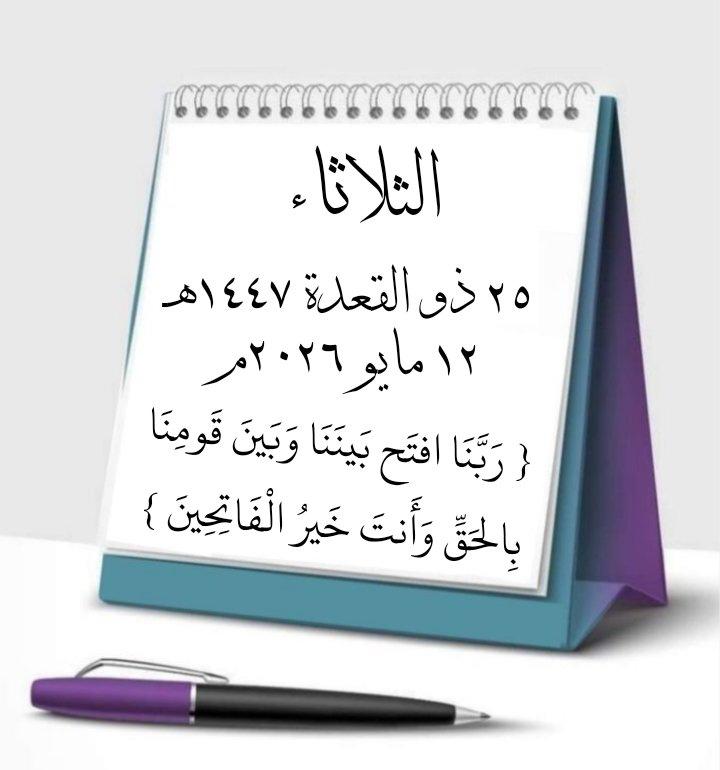 الثلاثاء
٢٥ ذو القعدة ١٤٤٧هـ
١٢ مايو ٢٠٢٦م
{ رَبَّنَا افتَح بَينَنَا وَبَينَ قَومِنَا
بِالحَقِّ وَأَنتَ خَيرُ الْفَاتِحِينَ }